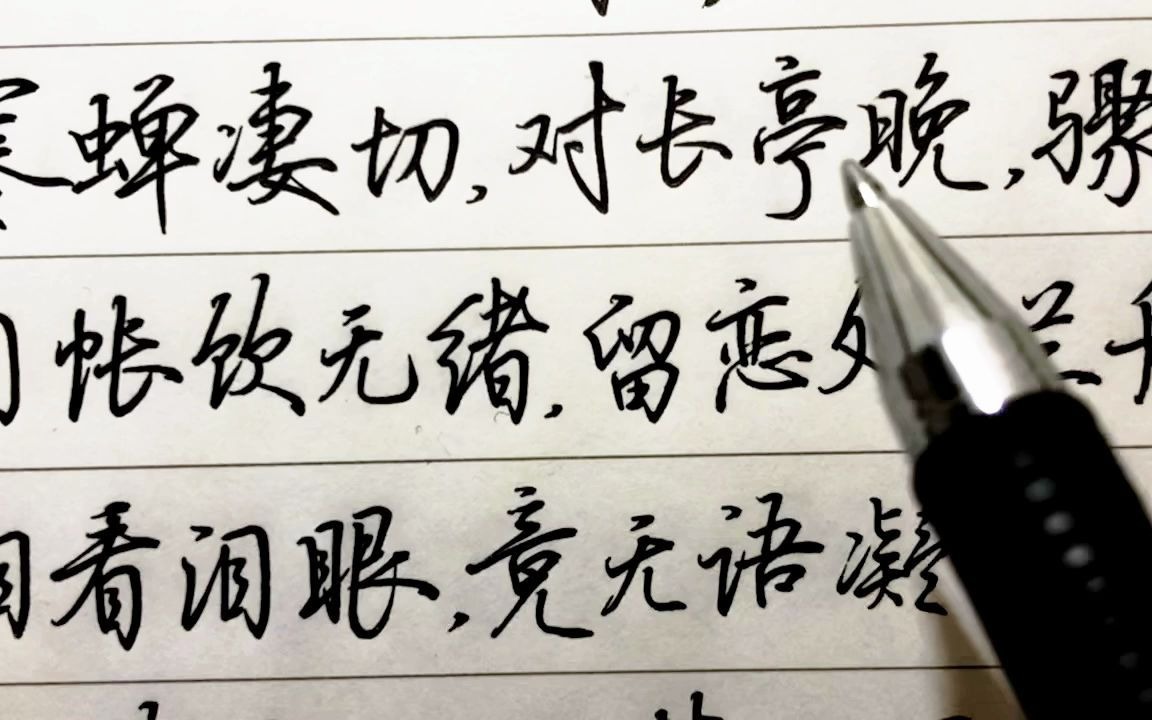 寒蝉凄切,对长亭晚,骤
帐饮无绪,留恋处兰舟
相看泪眼,竟无语凝